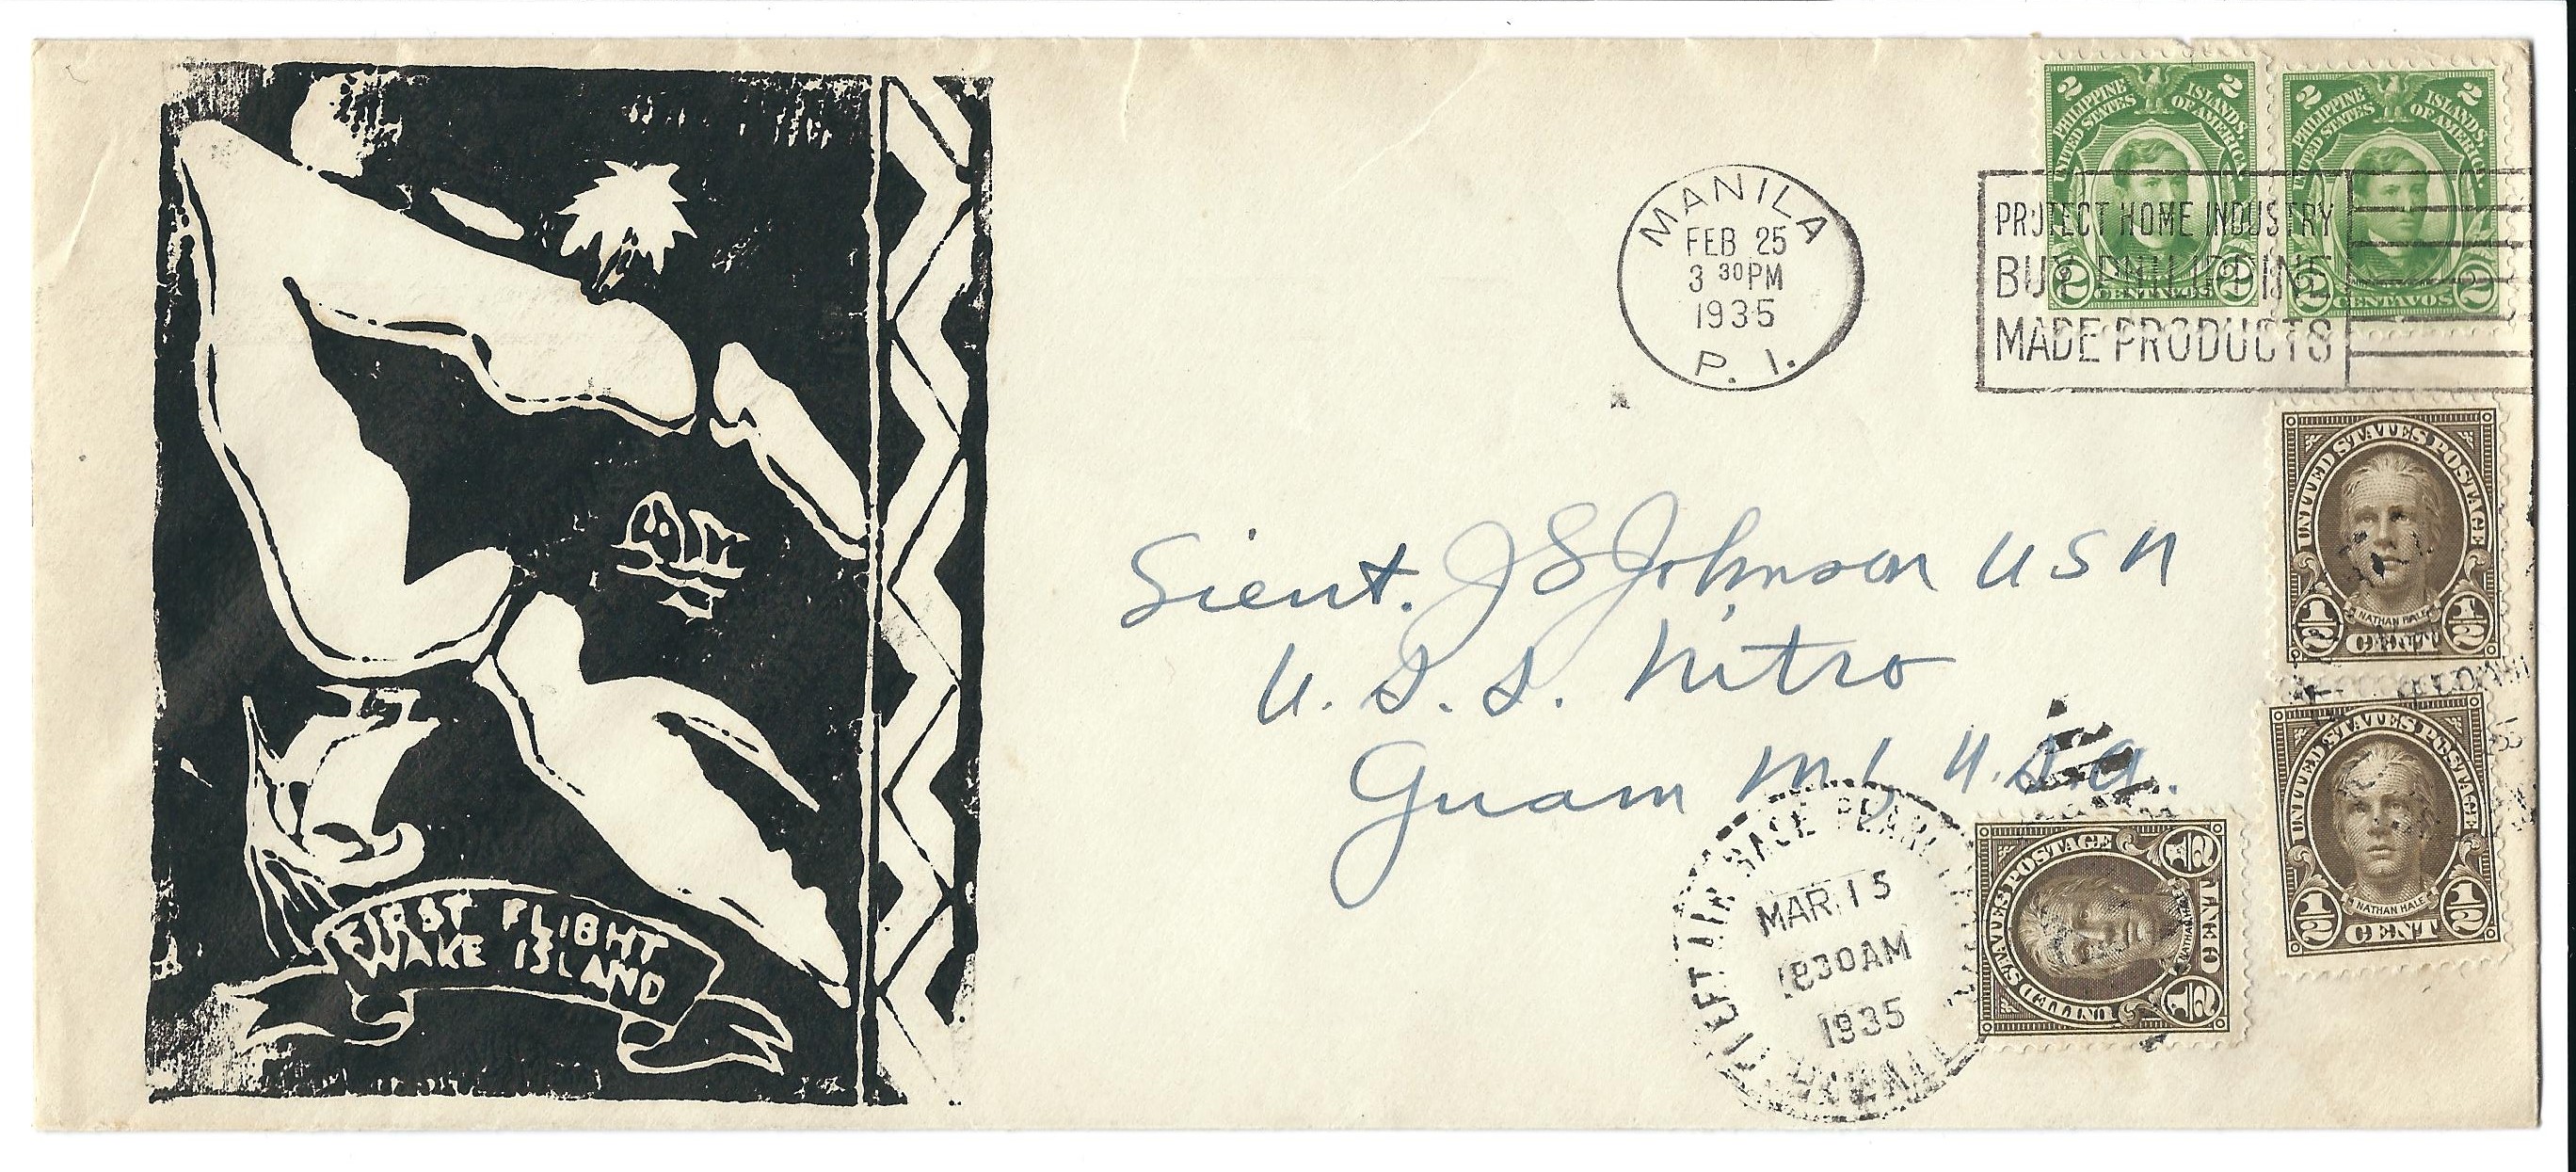 FIRST FLIGHT
WAKE ISLAND
MANILA
FEB 25
3 30PM
1935
P. I.
PROTECT HOME INDUSTRY
BUY PHILIPPINE
MADE PRODUCTS
2 2
PHILIPPINE ISLANDS,
UNITED STATES OF AMERICA.
2 CENTAVOS 2
2 2
PHILIPPINE ISLANDS,
UNITED STATES OF AMERICA.
2 CENTAVOS 2
Lieut. J S Johnson USN
U.S.S. Nitro
Guam M.I. U.S.A.
UNITED STATES POSTAGE
NATHAN HALE
1/2 CENT 1/2
UNITED STATES POSTAGE
NATHAN HALE
1/2 CENT 1/2
UNITED STATES POSTAGE
NATHAN HALE
1/2 CENT 1/2
FLEET AIR BASE PEARL
MAR 15
830AM
1935
HAWAII